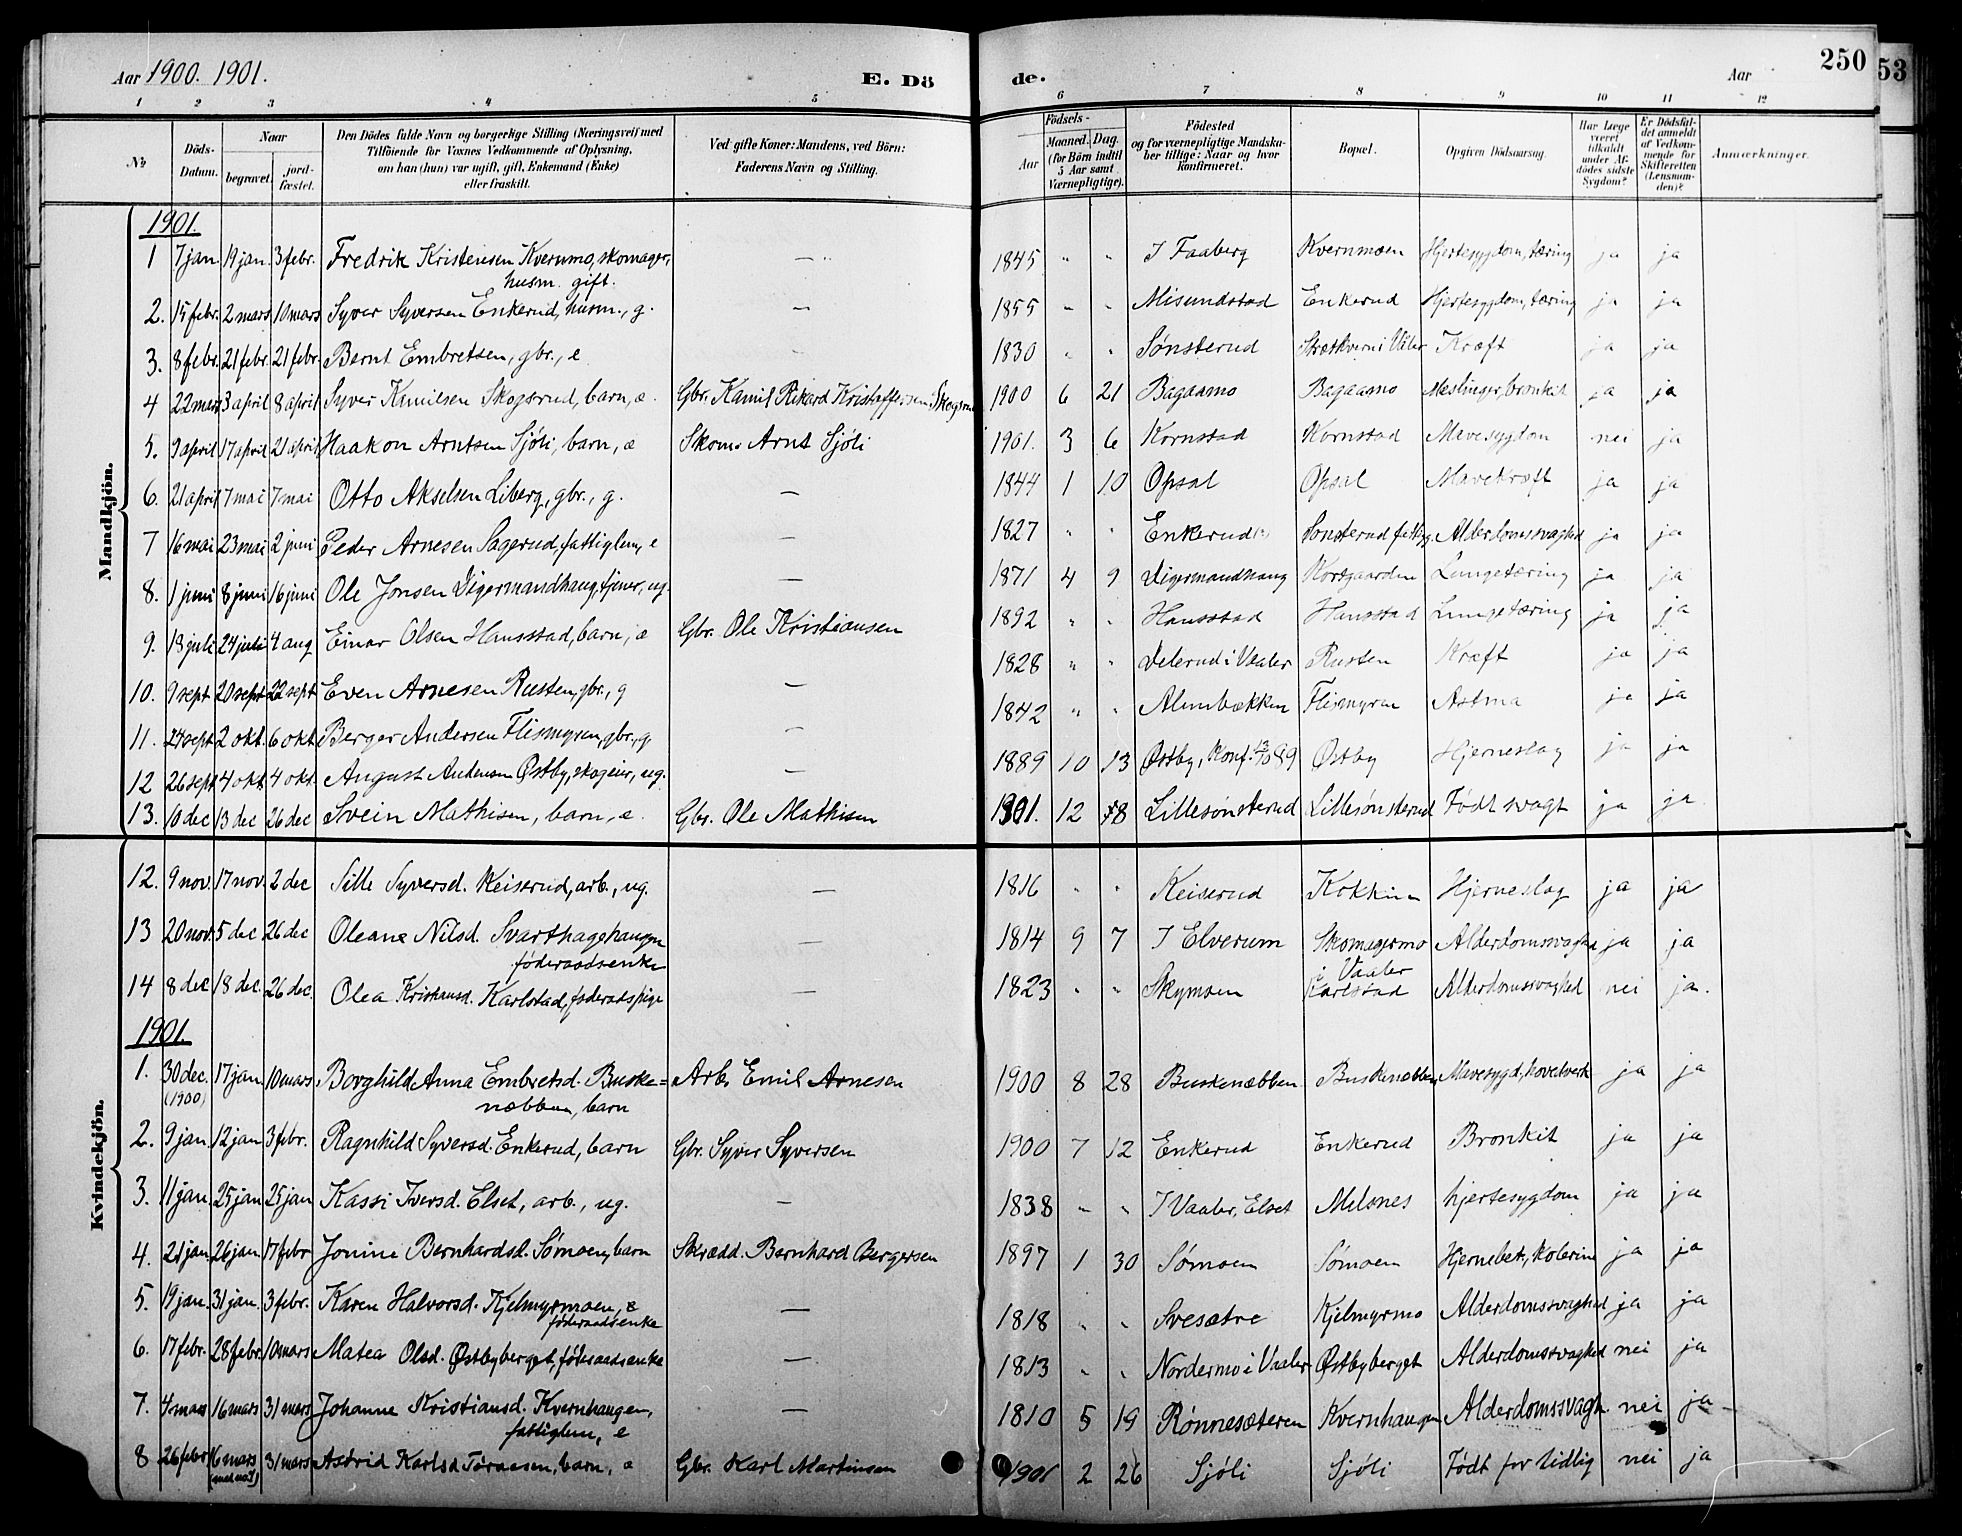 Aar 1900. 1901. E. Dö de. Aar 250 53
1 2 3 4 5 6 7 8 9 10 11 12
№ Döds-Datum. Naar begravet. jordfæstet. Den Dödes fulde Navn og borgerlige Stilling (Næringsvei) med Tilföiende for Voxnes Vedkommende af Oplysning, om han (hun) var ugift, gift, Enkemand (Enke) eller fraskilt. Ved gifte Koner: Mandens, ved Börn: Faderens Navn og Stilling. Födsels- Aar Maaned. Dag. (for Börn indtil 5 Aar samt Værnepligtige). Födested og for værnepligtige Mandskaber tillige: Naar og hvor konfirmeret. Bopæl. Opgiven Dödsaarsag. Har Læge været tilkaldt under Afdödes sidste Sygdom? Er Dödsfaldet anmeldt af Vedkommende for Skifteretten (Lensmanden)? Anmærkninger.
Mandkjön.
1901.
1 7 jan. 19 jan. 3 febr. Fredrik Kristensen Kvernmo, skomager, — 1845 " " I Faaberg Kvernmoen Hjertesygdom, tæring ja ja
husm. gift.
2. 15 febr. 2 mars 10 mars Syver Syversen Enkerud, husm., g. — 1855 " " Misundstad Enkerud Hjertesygdom, tæring ja ja
3. 8 febr. 21 febr. 21 febr. Bernt Embretsen, gbr., e — 1830 " " Sønsterud i Vaaler Kræft ja ja
4 22 mars 3 april 8 april Syver Kamilsen Skogsrud, barn, æ. Gbr. Kamil Rikard Kristoffersen Skogsrud 1900 6 21 Bagaasmo Bagaasmo Meslinger, bronkit ja ja
5. 9 april 17 april 21 april Haakon Arntsen Sjøli, barn, æ Skom. Arnt Sjøli 1901. 3 6 Kornstad Kornstad Mavesygdom nei ja
6. 21 april 7 mai 7 mai Otto Akselsen Liberg, gbr., g. — 1844 1 10 Opsal Opsal Mavekræft ja ja
7 16 mai 23 mai 2 juni Peder Arnesen Sagerud, fattiglem, e — 1827 " " Enkerud Sønsterud fatbyg. Alderdomssvaghed ja ja
8. 1 juni 8 juni 16 juni Ole Jonsen Digermandhaug, tjener, ug. — 1871 4 9 Digermandhaug Kordgaarden Lungetæring ja ja
9. 18 juli 24 juli 4 aug Einar Olsen Hansstad, barn, æ Gbr. Ole Kristiansen 1892 " " Hansstad Hansstad Lungetæring ja ja
10. 9 sept 20 sept 22 sept Even Arnesen Rusten, gbr., g — 1828 " " Delerud i Vaaler Rusten Kræft ja ja
11. 24 sept 2 okt. 6 okt. Berger Andersen Flismyren, gbr., g — 1842 " " Almbækken Flismyren Astma ja ja
12 26 sept 4 okt. 4 okt. August Andersen Østby, skogeier, ug. — 1889 10 13 Østby, Konf. Østby Hjerneslag ja ja
13. 10 dec 13 dec 26 dec Svein Mathisen, barn, e. Gbr. Ole Mathisen 1901. 12 8 Lillesønsterud Lillesønsterud Født svagt ja ja
Kvindekjön.
12. 9 nov. 17 nov. 2 dec Sille Syversd. Keiserud, arb., ug. — 1816 " " Keiserud Kokkin Hjerneslag ja ja
13 20 nov. 5 dec 26 dec Oleane Nilsd. Svarthagehaugen — 1814 9 7 I Elverum Skomagermo Alderdomssvaghed ja ja
føderaadsenke i Vaaler
14 8 dec 18 dec. 26 dec. Olea Kristiansd. Karlstad, føderadspige — 1823 " " Skymoen Karlstad Alderdomssvaghed nei ja.
1901.
1. 30 dec. 17 jan. 10 mars Borghild Anna Embretsd. Buske= Arb. Emil Arnesen 1900 8 28 Buskenæbben Buskenæbben Mavesygd., hovelverk ja ja
(1900) næbben, barn
2. 9 jan. 12 jan 3 febr. Ragnhild Syversd. Enkerud, barn Gbr. Syver Syversen 1900 7 12 Enkerud Enkerud Bronkit ja ja
3. 11 jan. 25 jan 25 jan Kassi Iversd. Elset, arb., ug. — 1838 " " I Vaaler, Elset Melsnes hjertesygdom ja ja
4. 21 jan. 26 jan. 17 febr Jonine Bernhardsd. Sømoen, barn Skrædd. Bernhard Bergersen 1897 1 30 Sømoen Sømoen Hjernebet., Kolerine ja ja
5. 19 jan. 31 jan. 3 febr. Karen Halvorsd. Kjelmyrmoen, e — 1818 " " Svesætre Kjelmyrmo Alderdomssvaghed ja ja
føderaadsenke
6. 17 febr. 28 febr. 10 mars Matea Olsd. Østbyberget, føderaadsenke — 1813 " " Nordermo i Vaaler Østbyberget Alderdomssvaghed nei ja
7. 4 mars 16 mars 31 mars Johanne Kristiansd. Kvernhaugen, — 1810 5 19 Rønnesæteren Kvernhaugen Alderdomssvagh. nei ja
fattiglem, e
8 26 febr 16 mars 31 mars Astrid Karlsd. Toraasen, barn, æ Gbr. Karl Martinsen 1901 2 26 Sjøli Sjøli Født for tidlig nei ja